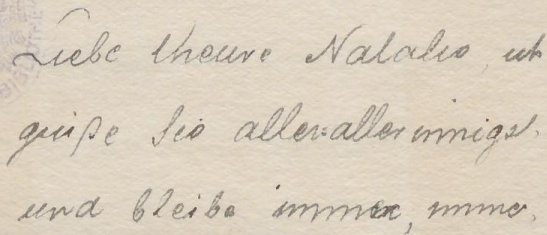 Liebe theure Natalie, ich
grüße Sie aller-allerinnigst
und bleibe immer, immer,